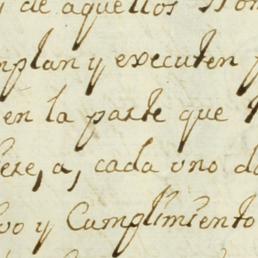 de aquellos
mplan y executen
en la parte que
ere, a, cada uno de
vo y Cumplimiento